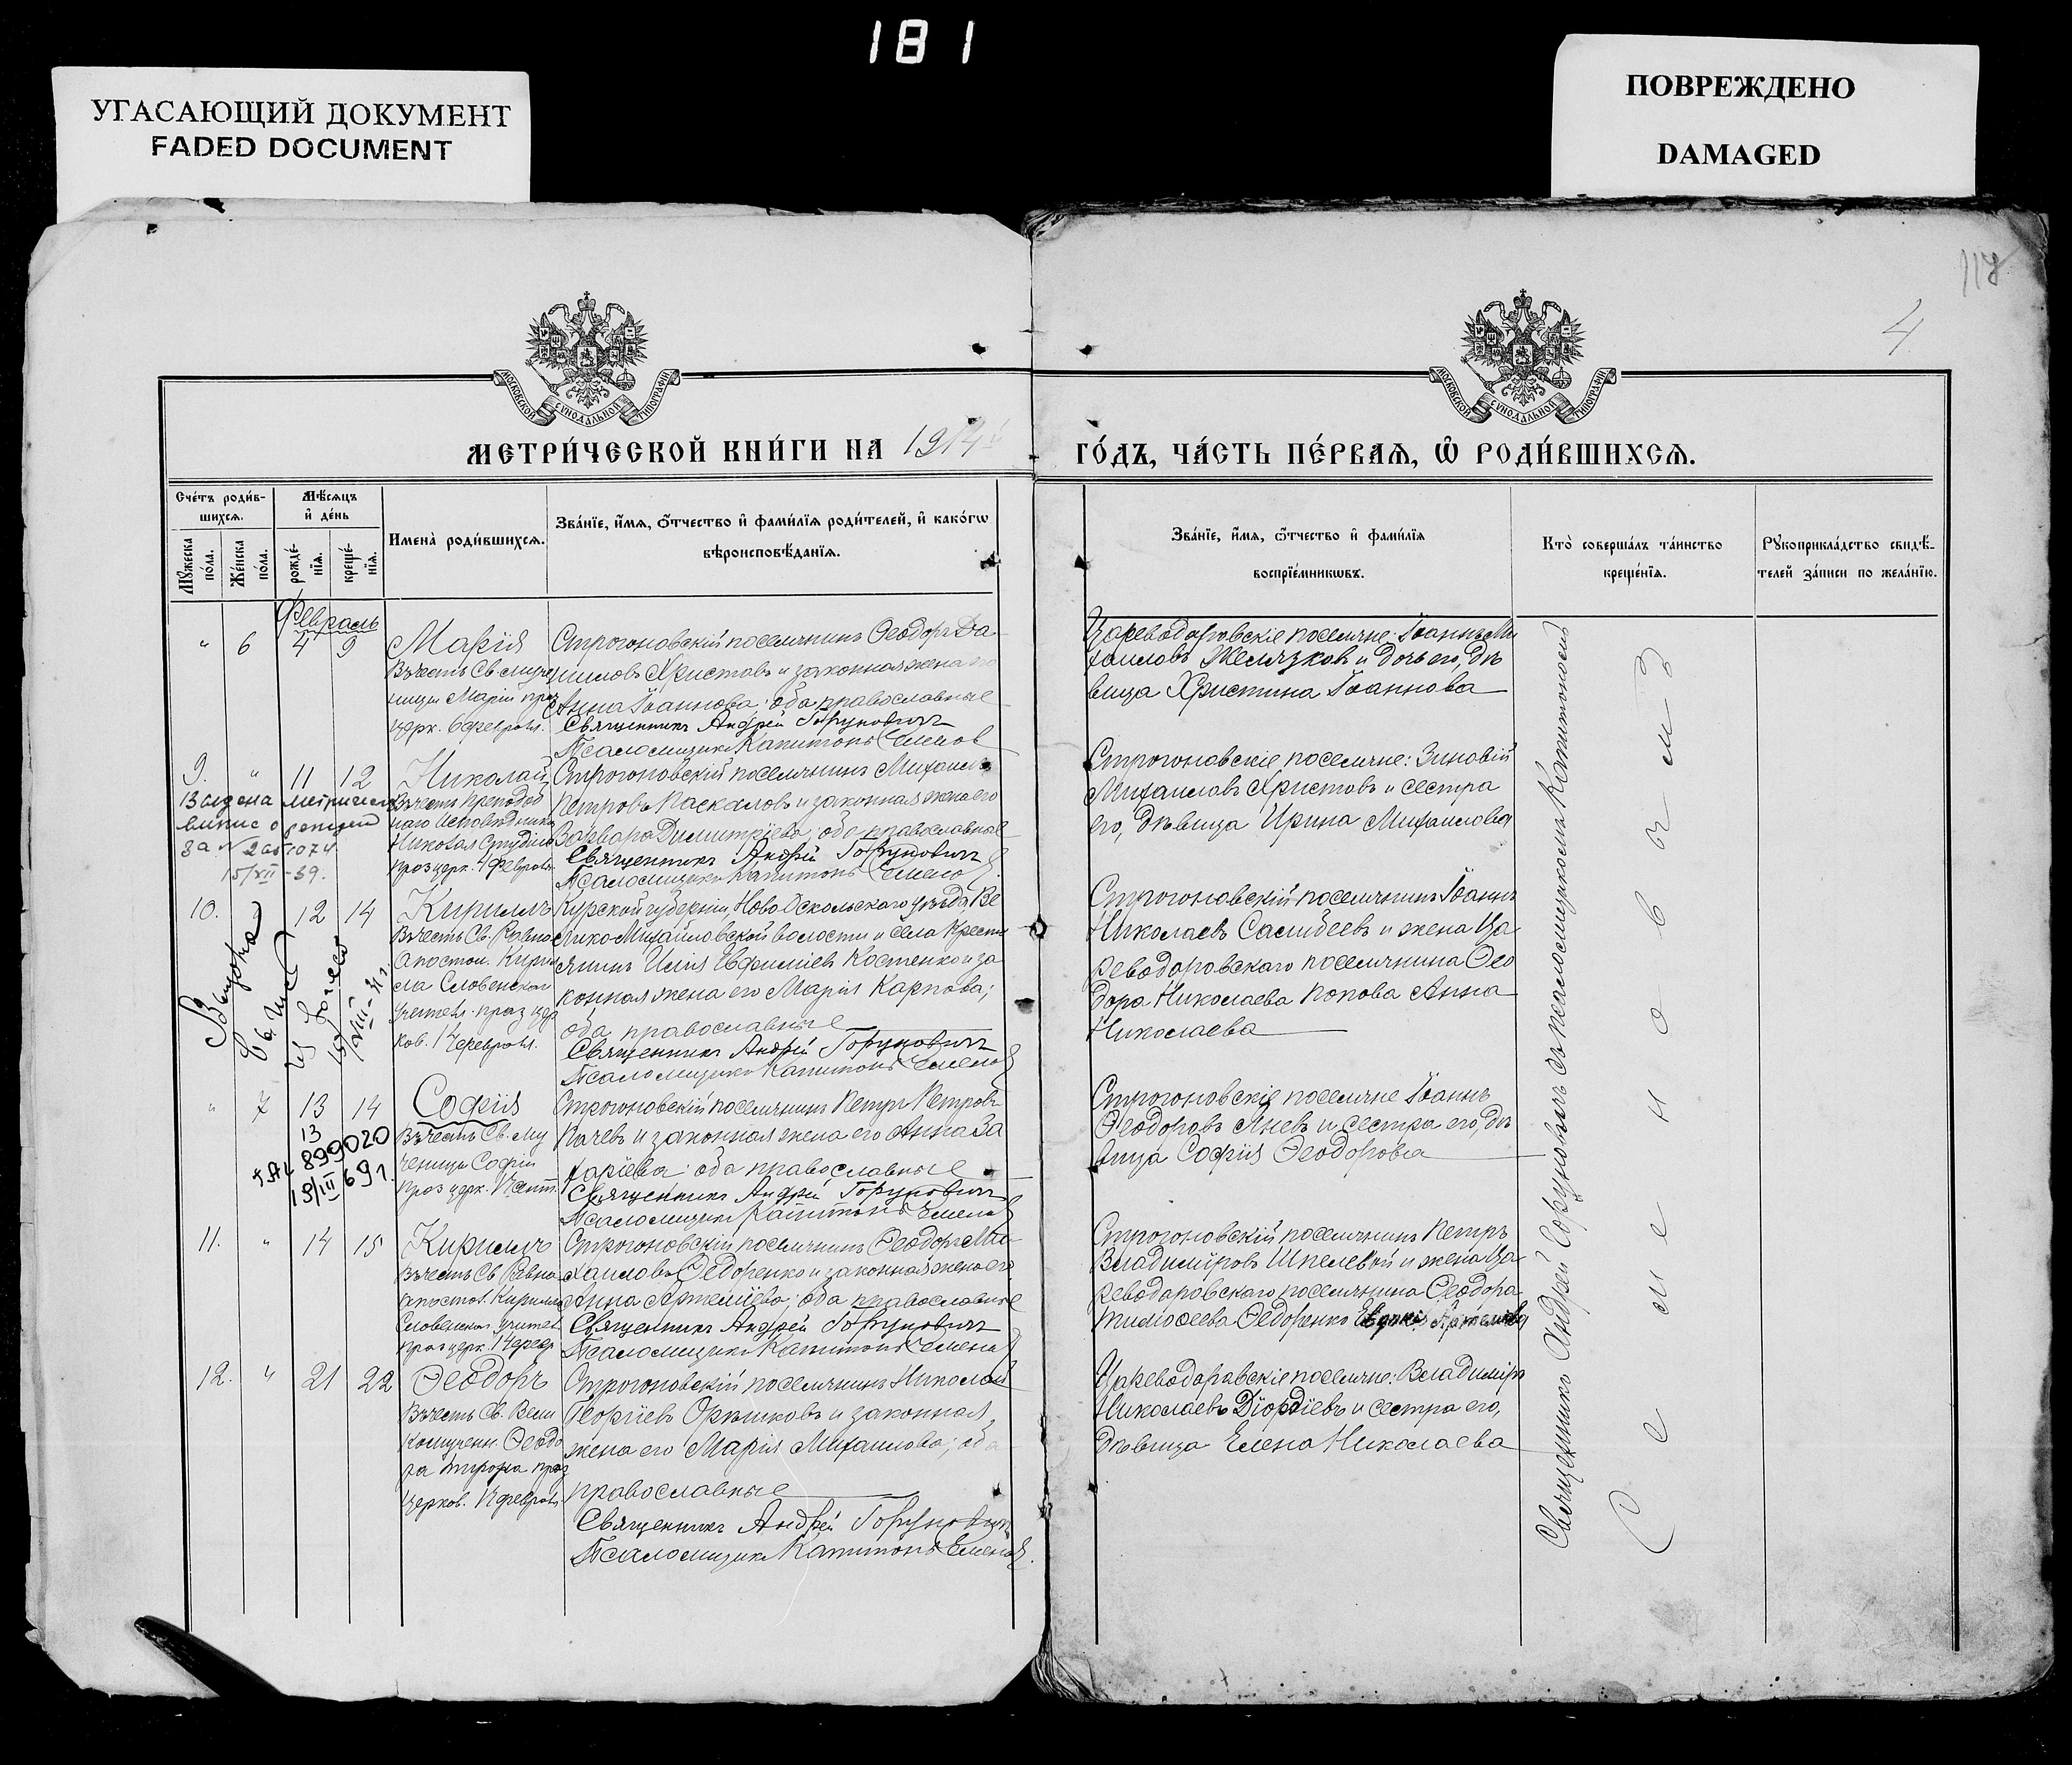 181
УГАСАЮЩИЙ ДОКУМЕНТ
FADED DOCUMENT
ПОВРЕЖДЕНО
DAMAGED
117
4
МОСКОВСКОЙ СѴНОДАЛЬНОЙ ТИПОГРАФІИ
МОСКОВСКОЙ СѴНОДАЛЬНОЙ ТИПОГРАФІИ
МЕТРИ́ЧЕСКОЙ КНИ́ГИ НА 1914
ГО́ДЪ, ЧА́СТЬ ПЕ́РВАѦ, Ѡ҆ РОДИ́ВШИХСѦ.
Сче́тъ роди́в-
шихсѧ.
Мѣ́сѧцъ
и҆ де́нь
Мꙋ́жеска
по́ла.
Же́нска
по́ла.
рожде́-
нїѧ.
креще́-
нїѧ.
Имена̀ роди́вшихсѧ.
Зва́нїе, и҆́мѧ, ѻ҆́тчество и҆ фами́лїѧ роди́телей, и҆ како́гѡ
вѣроисповѣ́данїѧ.
Зва́нїе, и҆́мѧ, ѻ҆́тчество и҆ фами́лїѧ
воспрїе́мникѡвъ.
Кто̀ соверша́лъ та́инство
креще́нїѧ.
Рꙋкоприкла́дство свидѣ́-
телей за́писи по жела́нїю.
Февраль
" 6 4 9 Марія
Въ честь Св. муче
ницы Маріи праз
церк. 6 февраля.
Строгоновскій поселянинъ Ѳеодоръ Да-
ниловъ Христовъ и законная жена его
Анна Іоаннова; оба православные
Священникъ Андрей Горуновичъ
Псаломщикъ Капитонъ Семенов
Цареводаровскіе поселяне: Іоаннъ Ми
хаиловъ Желязковъ и дочь его, дѣ
вица Христина Іоаннова
9. " 11 12 Николай
Въ честь преподоб
наго Исповѣдника
Николая Студита
праз церк. 4 февраля
Выдена метрическ
за №
15/XII-39.
Строгоновскій поселянинъ Михаилъ
Петровъ Паскаловъ и законная жена его
Варвара Димитріева; оба православные
Священникъ Андрей Горуновичъ
Псаломщикъ Капитонъ Семенов
Строгоновскіе поселяне: Зиновій
Михаиловъ Христовъ и сестра
его, дѣвица Ирина Михаилова
10. 12 14 Кириллъ
Въ честь Св. Равно
апостол. Кирил
ла Словенскаго
учителя. праз цер
ков. 14 февраля.
Курской губерніи, Ново Оскольскаго уѣзда Ве
лико Михайловской волости и села крестья
янинъ Илія Евфиміевъ Костенко и за
конная жена его Марія Карпова;
оба православные
Священникъ Андрей Горуновичъ
Псаломщикъ Капитонъ Семенов
Строгоновскій поселянинъ Іоаннъ
Николаевъ Салибеевъ и жена Ца
реводаровскаго поселянина Ѳео
дора Николаева Попова Анна
Николаева
" 7 13 14 Софія
Въ честь Св. му
ченицы Софіи
праз церк.
13
899020
13/III 69г.
Строгоновскій поселянинъ Петръ Петровъ
Качевъ и законная жена его Анна За
харіева; оба православные
Священникъ Андрей Горуновичъ
Псаломщикъ Капитонъ Семенов
Строгоновскіе поселяне Іоаннъ
Ѳеодоровъ Яневъ и сестра его, дѣ
вица Софія Ѳеодорова
11. " 14 15 Кириллъ
Въ честь Св. Равно
апостол. Кирилла
Словенскаго учител
праз церк. 14 февр
Строгоновскій поселянинъ Ѳеодоръ Ми-
хаиловъ Ѳедоренко и законная жена его
Анна Артеміева; оба православные
Священникъ Андрей Горуновичъ
Псаломщикъ Капитонъ Семенов
Строгоновскій поселянинъ Петръ
Владиміровъ Шпелевой и жена Ца-
реводаровскаго поселянина Ѳеодора
Тимоѳеева Ѳедоренко
12. " 21 22 Ѳеодоръ
Въ честь Св. Вели
комученн. Ѳеодо
ра Тирона праз
церков. 17 февраля
Строгоновскій поселянинъ Николай
Георгіевъ Орѣшковъ и законная
жена его Марія Михаилова; оба
православные
Священникъ Андрей Горуновичъ
Псаломщикъ Капитонъ Семенов.
Цареводаровскіе поселяне: Владиміръ
Николаевъ Діордіевъ и сестра его,
дѣвица Елена Николаева
Священникъ Андрей Горуновичъ съ псаломщикомъ Капитономъ
Семеновымъ